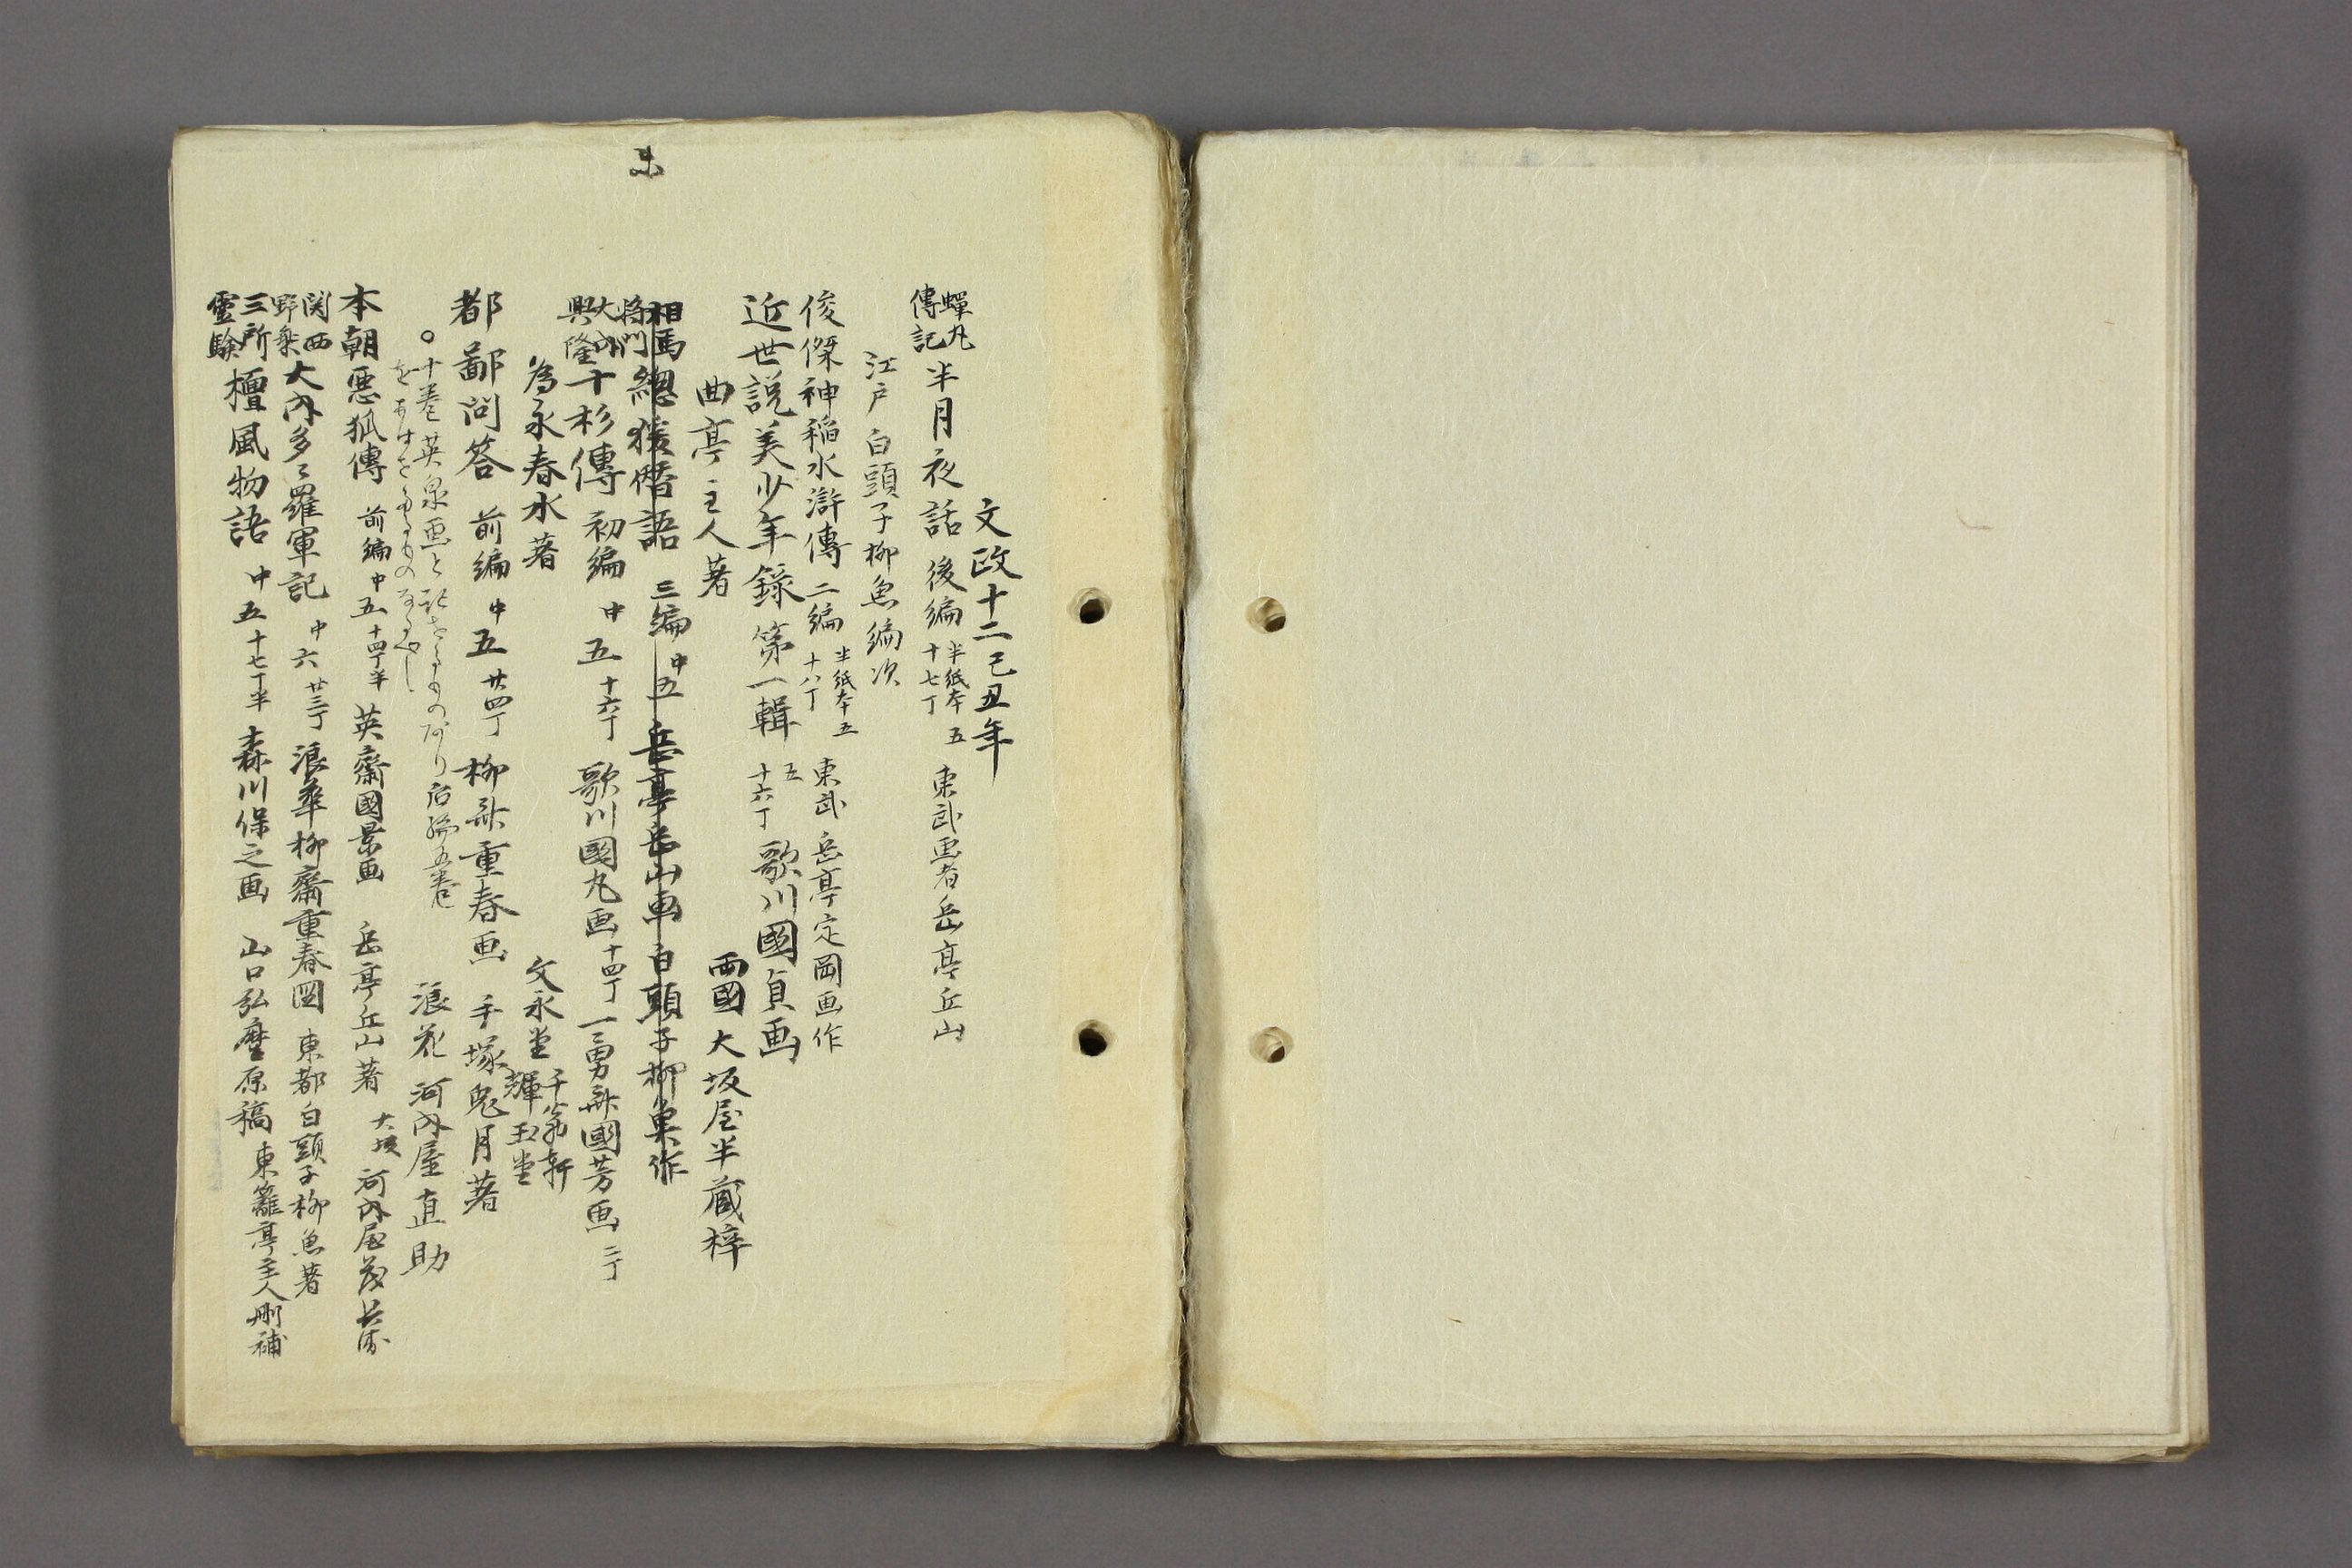 文政十二己丑年
蟬丸傳記 半月夜話 後編 半紙本五 十七丁 東武画者岳亭丘山
江戸 白頭子柳魚編次
俊傑神稲水滸傳 二編 半紙本五 十八丁 東武 岳亭定岡画作
近世説美少年録 第一輯 五 十六丁 歌川國貞画
曲亭主人著 両國 大坂屋半蔵梓
相馬將門 總猨僭語 三編 中五 岳亭岳山画 白頭子柳魚作
大内興隆 十杉傳 初編 中五 十六丁 歌川國丸画 十四丁 一勇齋國芳画 二丁
為永春水著 文永堂 千翁軒 輝玉堂
都鄙問答 前編 中五 廿四丁 柳齋重春画 手塚兎月著
浪花 河内屋直助
○十巻英泉画と
本朝悪狐傳 前編 中五 十四丁半 英齋國景画 岳亭丘山著 大坂 河内屋茂兵衛
関西野乗 大内多々羅軍記 中六 廿三丁 浪華柳齋重春図 東都白頭子柳魚著
三所霊驗 檀風物語 中五 十七丁半 森川保之画 山口弘麿原稿 東籬亭主人刪補